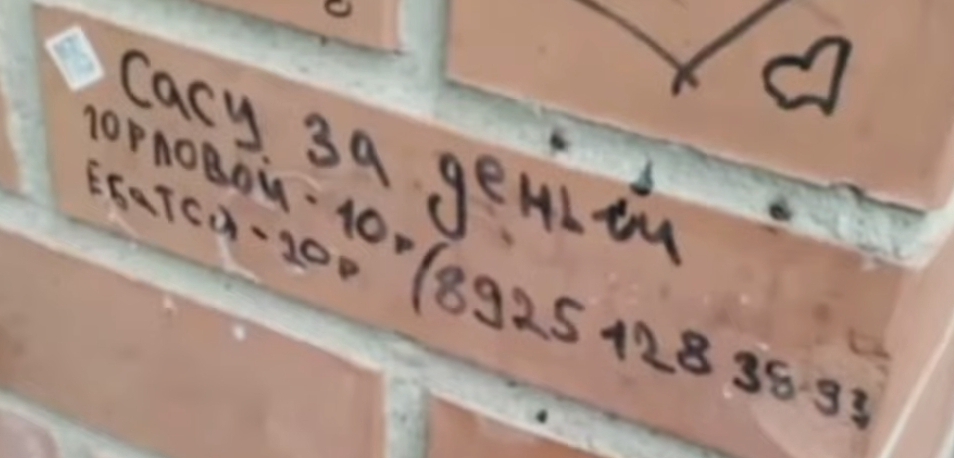 Сасу за деньги
горловой - 10р
Ебатся - 20р (8925 128 38-93